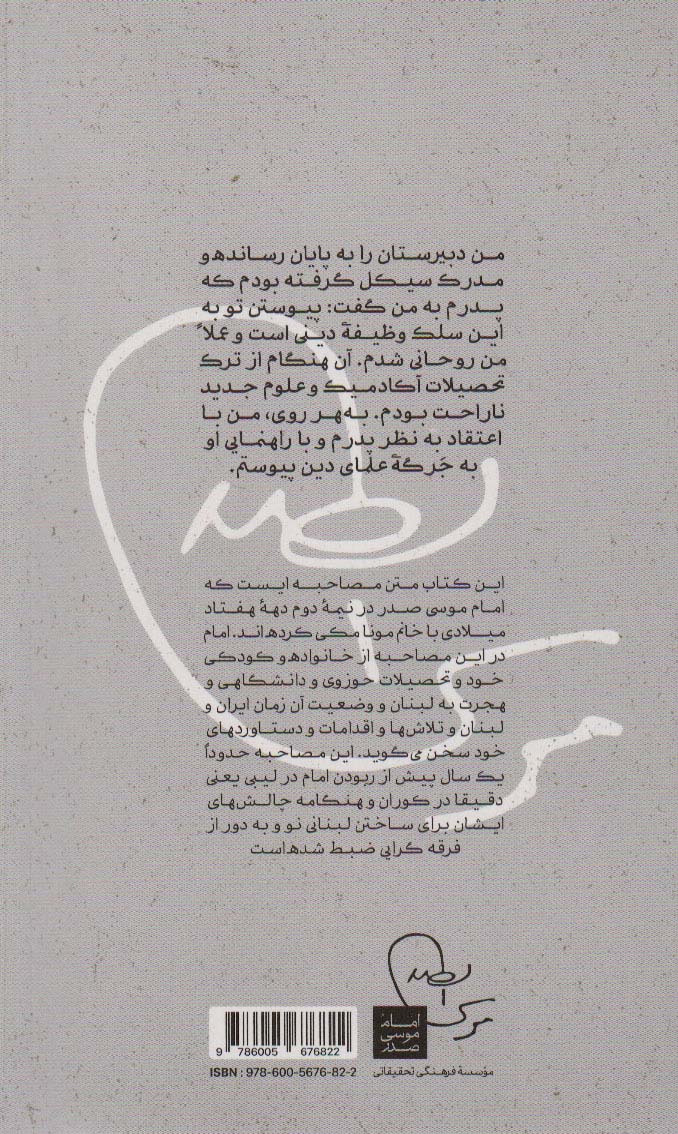 من دبیرستان را به پایان رسانده و
مدرک سیکل گرفته بودم که
پدرم به من گفت: پیوستن تو به
این سلک وظیفهٔ دینی است و عملاً
من روحانی شدم. آن هنگام از ترک
تحصیلات آکادمیک و علوم جدید
ناراحت بودم. به‌هر روی، من با
اعتقاد به نظر پدرم و با راهنمایی او
به جَرگهٔ علمای دین پیوستم.
این کتاب متن مصاحبه ایست که
امام موسی صدر در نیمهٔ دوم دههٔ هفتاد
میلادی با خانم مونا مکی کرده‌اند. امام
در این مصاحبه از خانواده و کودکی
خود و تحصیلات حوزوی و دانشگاهی و
هجرت به لبنان و وضعیت آن زمان ایران و
لبنان و تلاش‌ها و اقدامات و دستاوردهای
خود سخن می‌گوید. این مصاحبه حدوداً
یک سال پیش از ربودن امام در لیبی یعنی
دقیقا در کوران و هنگامه چالش‌های
ایشان برای ساختن لبنانی نو و به دور از
فرقه گرایی ضبط شده‌است
امام
موسی
صدر
مؤسسهٔ فرهنگی تحقیقاتی
9 786005 676822
ISBN : 978-600-5676-82-2